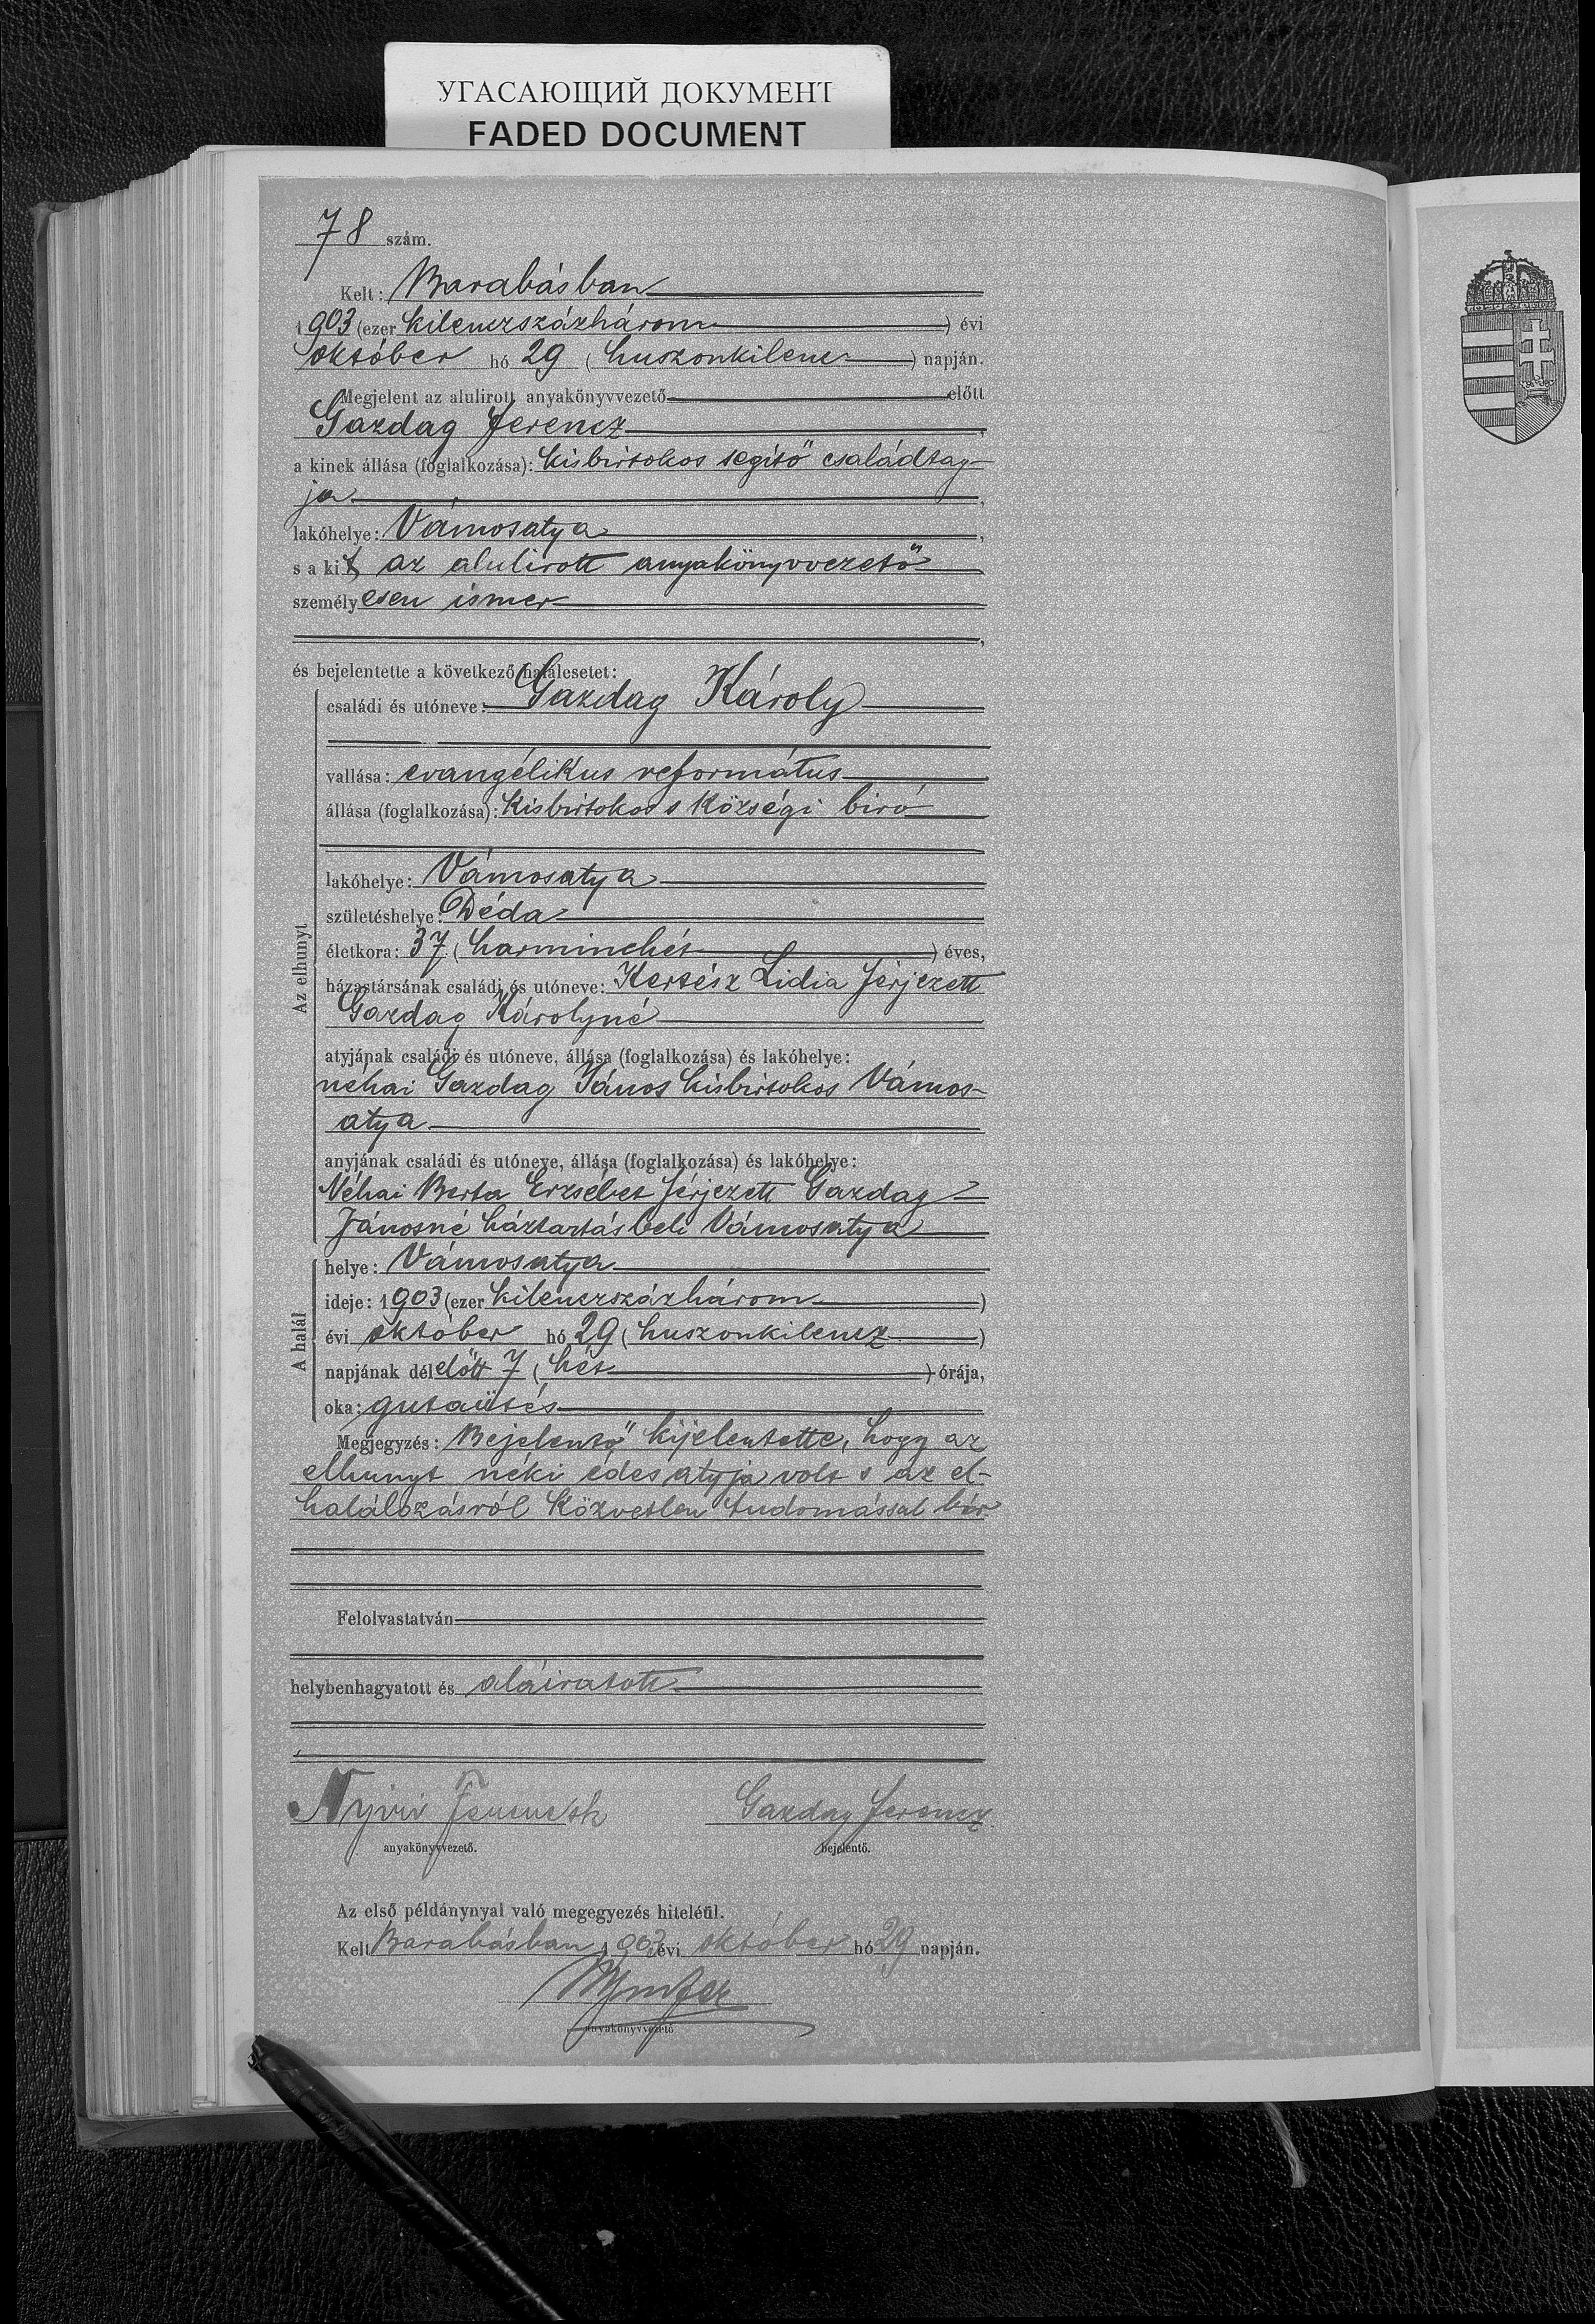 УГАСАЮЩИЙ ДОКУМЕНТ
FADED DOCUMENT
78 szám.
Kelt: Barabásban
1903 (ezer kilenczszázhárom) évi
október hó 29 (huszonkilencz) napján.
Megjelent az alulirott anyakönyvvezető előtt
Gazdag Ferencz,
a kinek állása (foglalkozása): kisbirtokos segítő családtag-
ja,
lakóhelye: Vámosatya,
s a kit az alulirott anyakönyvvezető
személyesen ismer
és bejelentette a következő halálesetet:
Az elhunyt
családi és utóneve: Gazdag Károly
vallása: evangélikus református
állása (foglalkozása): kisbirtokos s községi biró
lakóhelye: Vámosatya
születéshelye: Déda
életkora: 37 (harminchét) éves,
házastársának családi és utóneve: Kertész Lidia férjezett
Gazdag Károlyné
atyjának családi és utóneve, állása (foglalkozása) és lakóhelye:
néhai Gazdag János kisbirtokos Vámos-
atya
anyjának családi és utóneve, állása (foglalkozása) és lakóhelye:
Néhai Berta Erzsébet férjezett Gazdag
Jánosné háztartásbeli Vámosatya
A halál
helye: Vámosatya
ideje: 1903 (ezer kilenczszázhárom)
évi október hó 29 (huszonkilencz)
napjának délelőtt 7 (hét) órája,
oka: gutaütés
Megjegyzés: Bejelentő kijelentette, hogy az
elhunyt néki édes atyja volt s az el-
halálozásról közvetlen tudomással bír
Felolvastatván
helybenhagyatott és aláiratott
Nyiri Ferencz sk Gazdag Ferencz
anyakönyvvezető. bejelentő.
Az első példánynyal való megegyezés hiteléül.
Kelt Barabásban 1903 évi október hó 29 napján.
anyakönyvvezető